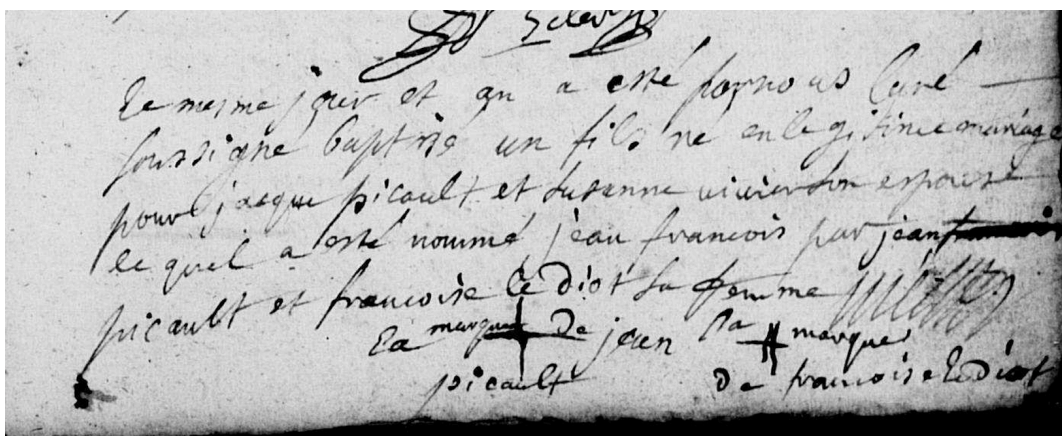 le mesme jour et an a esté par nous Curé
soussigné baptisé un fils né en legitime mariage
pour jacque picault et susanne vivier son espouse
le quel a esté nommé jean francois par jean
picault et francoise le Diot sa femme
La marque De jean La marque
picault De francoise le Diot